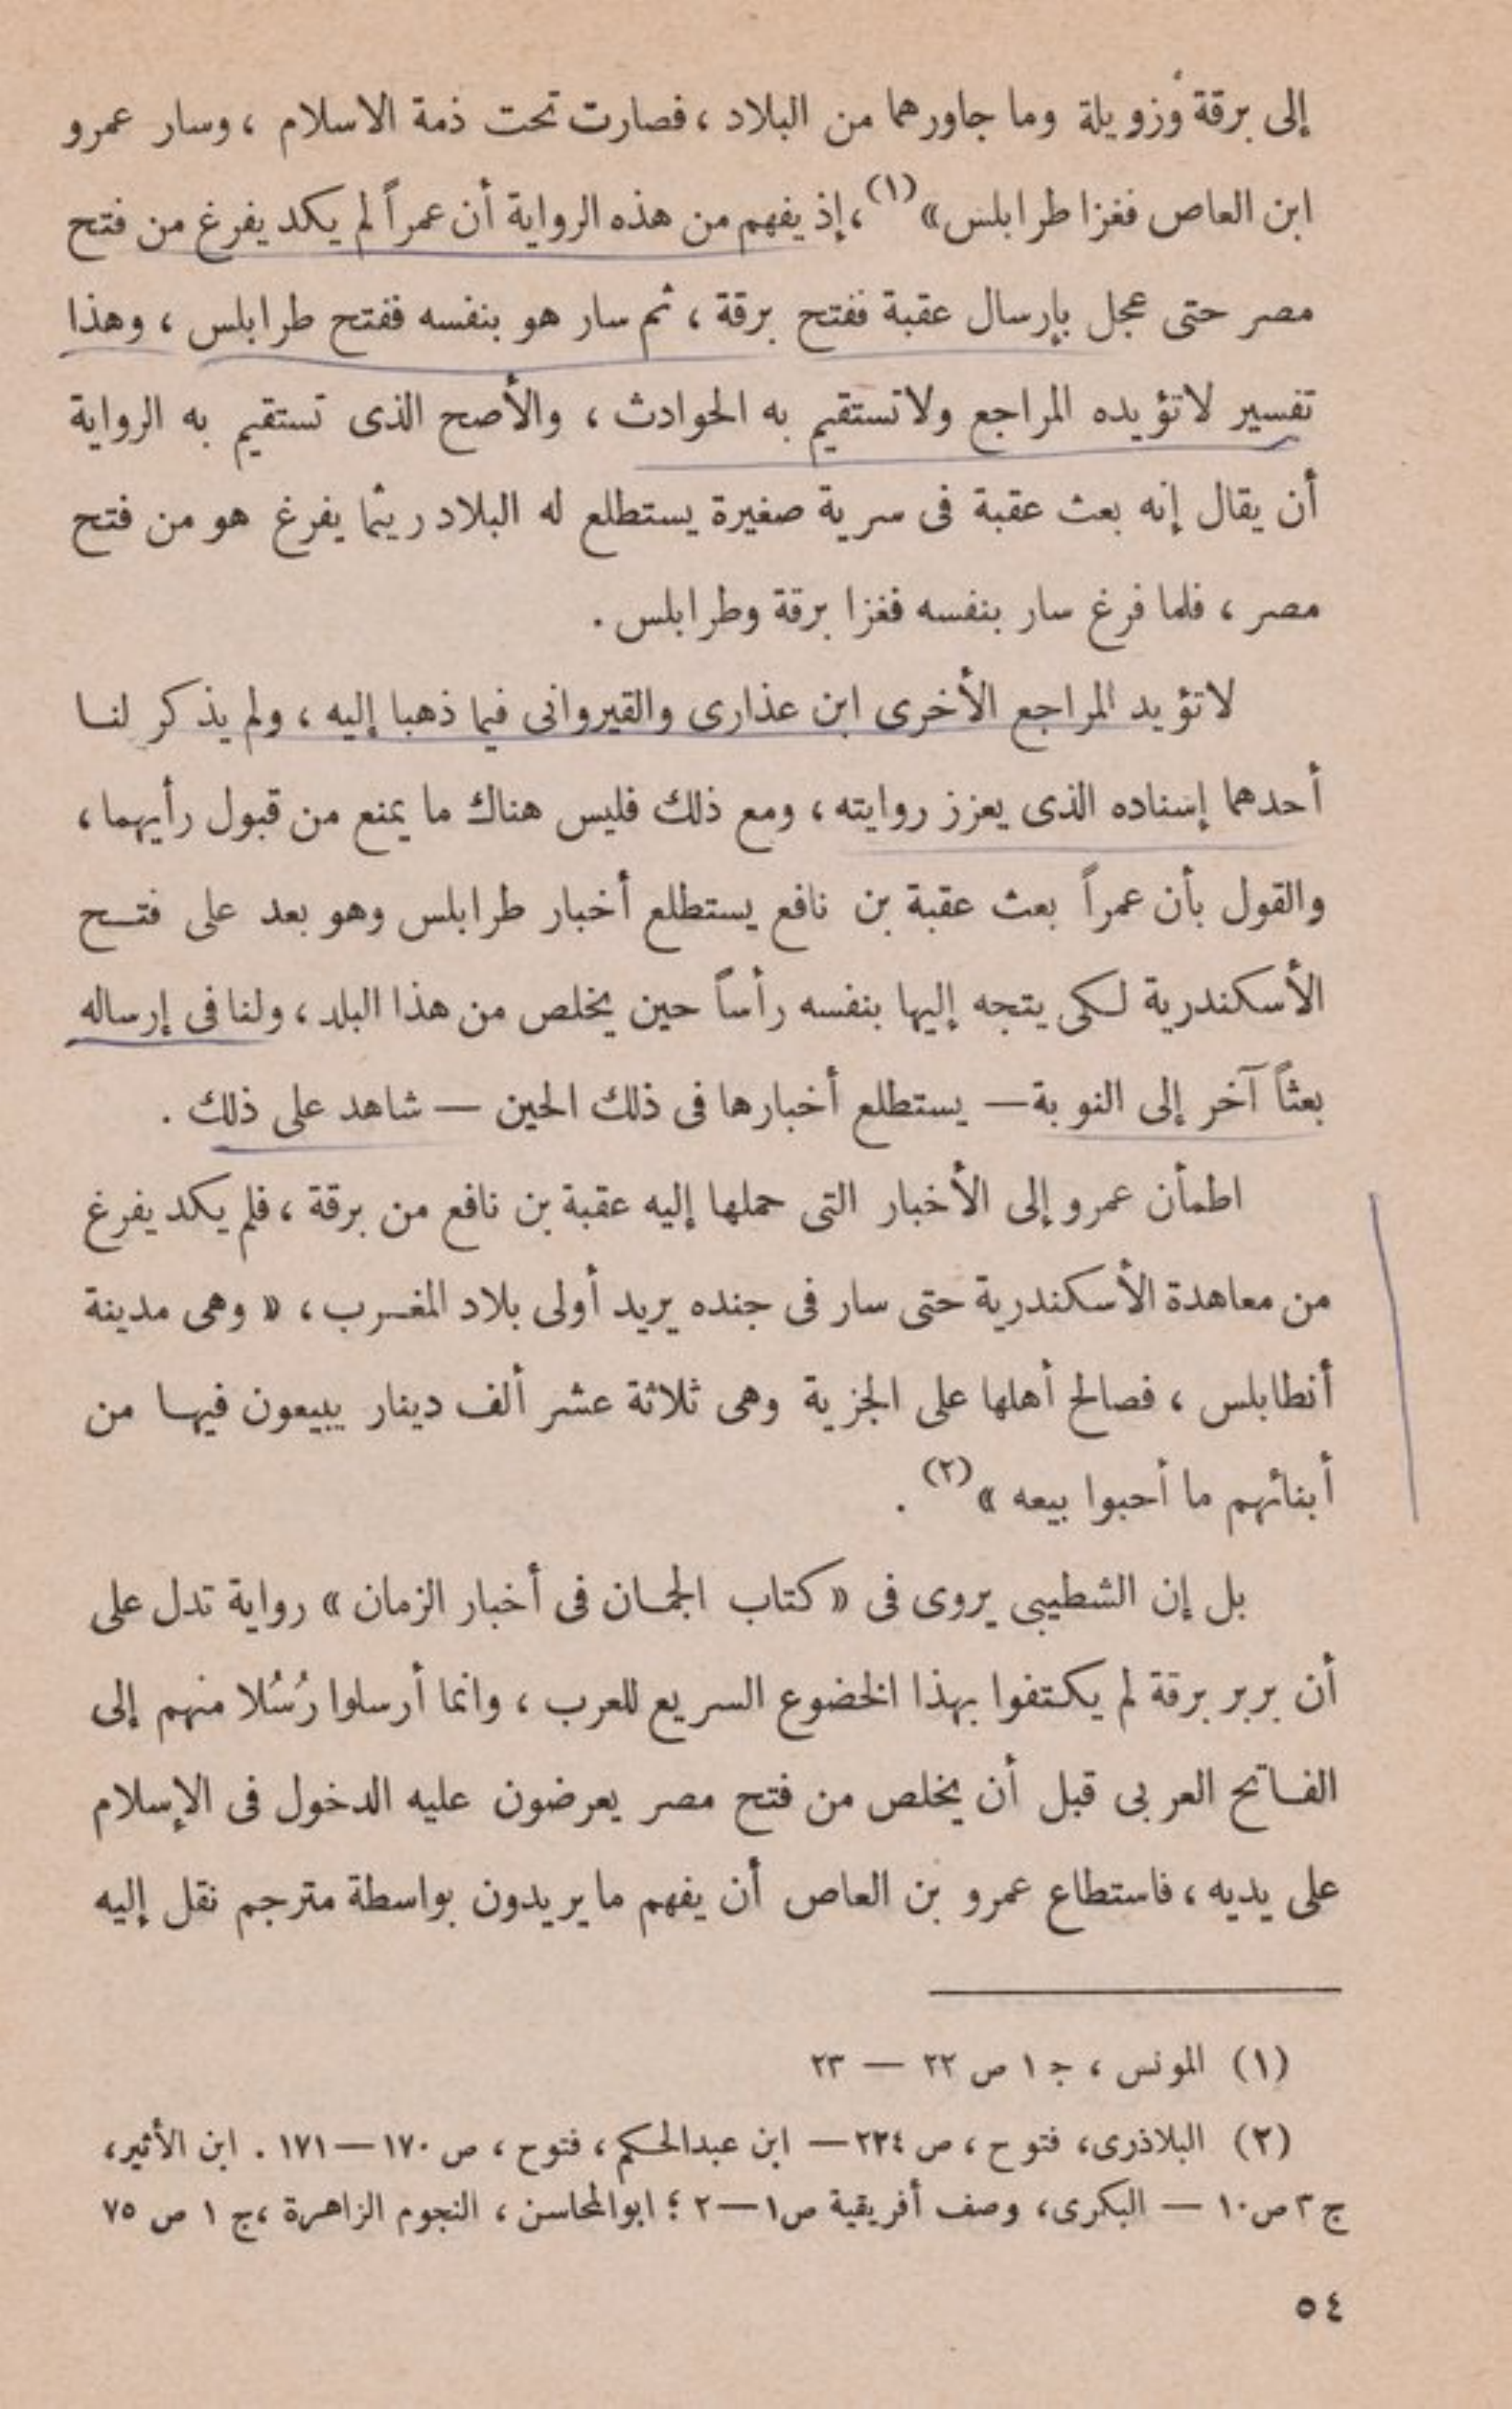 إلى برقة وزويلة وما جاورهما من البلاد ، فصارت تحت ذمة الاسلام ، وسار عمرو
ابن العاص فغزا طرابلس»(١) ، إذ يفهم من هذه الرواية أن عمراً لم يكد يفرغ من فتح
مصر حتى عجل بإرسال عقبة ففتح برقة ، ثم سار هو بنفسه ففتح طرابلس ، وهذا
تفسير لاتؤيده المراجع ولاتستقيم به الحوادث ، والأصح الذى تستقيم به الرواية
أن يقال إنه بعث عقبة فى سرية صغيرة يستطلع له البلاد ريثما يفرغ هو من فتح
مصر ، فلما فرغ سار بنفسه فغزا برقة وطرابلس .
لاتؤيد المراجع الأخرى ابن عذارى والقيروانى فيما ذهبا إليه ، ولم يذكر لنا
أحدهما إسناده الذى يعزز روايته ، ومع ذلك فليس هناك ما يمنع من قبول رأيهما ،
والقول بأن عمراً بعث عقبة بن نافع يستطلع أخبار طرابلس وهو بعد على فتح
الأسكندرية لكى يتجه إليها بنفسه رأساً حين يخلص من هذا البلد ، ولنا فى إرساله
بعثاً آخر إلى النوبة — يستطلع أخبارها فى ذلك الحين — شاهد على ذلك .
اطمأن عمرو إلى الأخبار التى حملها إليه عقبة بن نافع من برقة ، فلم يكد يفرغ
من معاهدة الأسكندرية حتى سار فى جنده يريد أولى بلاد المغرب ، « وهى مدينة
أنطابلس ، فصالح أهلها على الجزية وهى ثلاثة عشر ألف دينار يبيعون فيها من
أبنائهم ما أحبوا بيعه »(٢) .
بل إن الشطيبى يروى فى « كتاب الجمان فى أخبار الزمان » رواية تدل على
أن بربر برقة لم يكتفوا بهذا الخضوع السريع للعرب ، وانما أرسلوا رُسُلا منهم إلى
الفاتح العربى قبل أن يخلص من فتح مصر يعرضون عليه الدخول فى الإسلام
على يديه ، فاستطاع عمرو بن العاص أن يفهم ما يريدون بواسطة مترجم نقل إليه
(١) المونس ، ج ١ ص ٢٢ — ٢٣
(٢) البلاذرى، فتوح ، ص ٢٢٤ — ابن عبدالحكم ، فتوح ، ص ١٧٠ — ١٧١ . ابن الأثير،
ج ٣ ص ١٠ — البكرى، وصف أفريقية ص ١ — ٢ ؛ ابوالمحاسن ، النجوم الزاهرة ، ج ١ ص ٧٥
٥٤